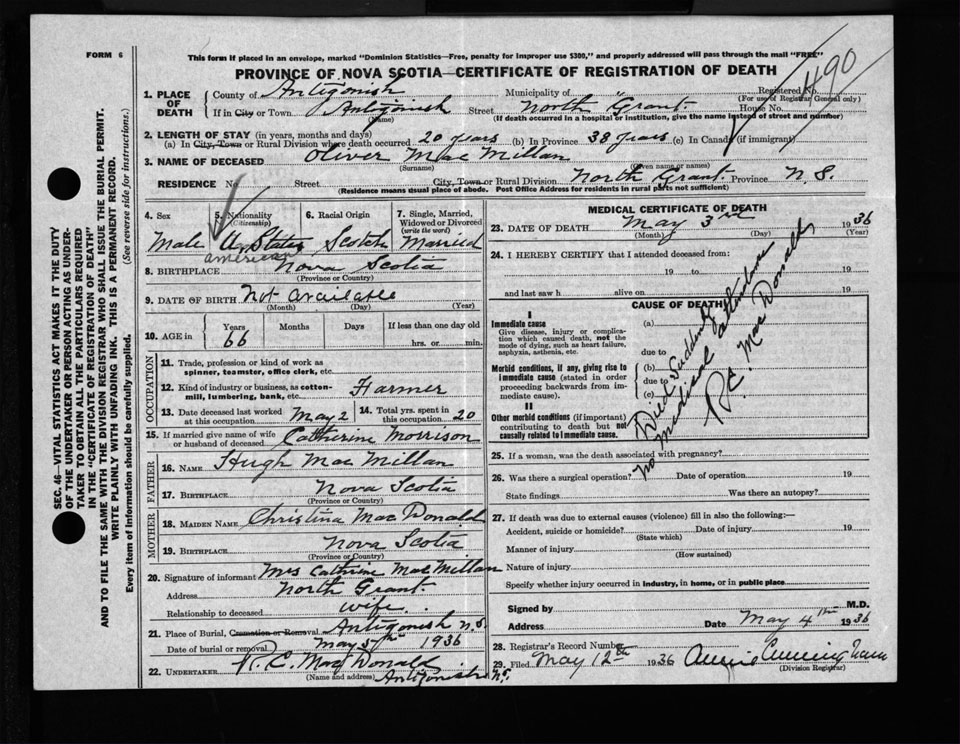 FORM 6
This form if placed in an envelope, marked "Dominion Statistics—Free, penalty for improper use $300," and properly addressed will pass through the mail "FREE"
PROVINCE OF NOVA SCOTIA—CERTIFICATE OF REGISTRATION OF DEATH
490
1. PLACE OF DEATH
County of Antigonish Municipality of Registered No.
(For use of Registrar General only)
If in City or Town Antigonish Street North Grant House No.
(Name) (If death occurred in a hospital or institution, give the name instead of street and number)
2. LENGTH OF STAY (in years, months and days)
(a) In City, Town or Rural Division where death occurred 20 years (b) In Province 38 years (c) In Canada (if immigrant)
3. NAME OF DECEASED Oliver Mac Millan
(Surname) (Given name or names)
RESIDENCE No. Street City, Town or Rural Division North Grant Province N.S.
(Residence means usual place of abode. Post Office Address for residents in rural parts not sufficient)
4. Sex 5. Nationality (Citizenship) 6. Racial Origin 7. Single, Married, Widowed or Divorced (write the word)
Male U. States Scotch Married
American
8. BIRTHPLACE Nova Scotia
(Province or Country)
9. DATE OF BIRTH Not available
(Month) (Day) (Year)
10. AGE in Years Months Days If less than one day old
66 hrs. or min.
OCCUPATION
11. Trade, profession or kind of work as spinner, teamster, office clerk, etc.
12. Kind of industry or business, as cotton-mill, lumbering, bank, etc. Farmer
13. Date deceased last worked at this occupation May 2 14. Total yrs. spent in this occupation 20
15. If married give name of wife or husband of deceased Catherine Morrison
FATHER
16. NAME Hugh Mac Millan
17. BIRTHPLACE Nova Scotia
(Province or Country)
MOTHER
18. MAIDEN NAME Christina Mac Donald
19. BIRTHPLACE Nova Scotia
(Province or Country)
20. Signature of informant Mrs Cathrine Mac Millan
Address North Grant
Relationship to deceased wife
21. Place of Burial, Cremation or Removal Antigonish N.S.
Date of burial or removal May 5th 1936
22. UNDERTAKER R. C. Mac Donald
(Name and address) Antigonish N.S.
MEDICAL CERTIFICATE OF DEATH
23. DATE OF DEATH May 3rd 1936
(Month) (Day) (Year)
24. I HEREBY CERTIFY that I attended deceased from:
19 to 19
and last saw h alive on 19
CAUSE OF DEATH
I
Immediate cause
Give disease, injury or complication which caused death, not the mode of dying, such as heart failure, asphyxia, asthenia, etc.
(a)
due to
Morbid conditions, if any, giving rise to immediate cause (stated in order proceeding backwards from immediate cause).
(b)
due to
(c)
II
Other morbid conditions (if important) contributing to death but not causally related to immediate cause.
Died Suddenly
no Medical attendance
R.C. Mac Donald
25. If a woman, was the death associated with pregnancy?
26. Was there a surgical operation? Date of operation 19
State findings Was there an autopsy?
27. If death was due to external causes (violence) fill in also the following:—
Accident, suicide or homicide? Date of injury 19
(State which)
Manner of injury
(How sustained)
Nature of injury
Specify whether injury occurred in industry, in home, or in public place
Signed by M.D.
Address Date May 4th 1936
28. Registrar's Record Number
29. Filed May 12th 1936 Annie Cunningham
(Division Registrar)
SEC. 46—VITAL STATISTICS ACT MAKES IT THE DUTY
OF THE UNDERTAKER OR PERSON ACTING AS UNDER-
TAKER TO OBTAIN ALL THE PARTICULARS REQUIRED
IN THE "CERTIFICATE OF REGISTRATION OF DEATH"
AND TO FILE THE SAME WITH THE DIVISION REGISTRAR WHO SHALL ISSUE THE BURIAL PERMIT.
WRITE PLAINLY WITH UNFADING INK. THIS IS A PERMANENT RECORD.
Every item of information should be carefully supplied. (See reverse side for instructions.)